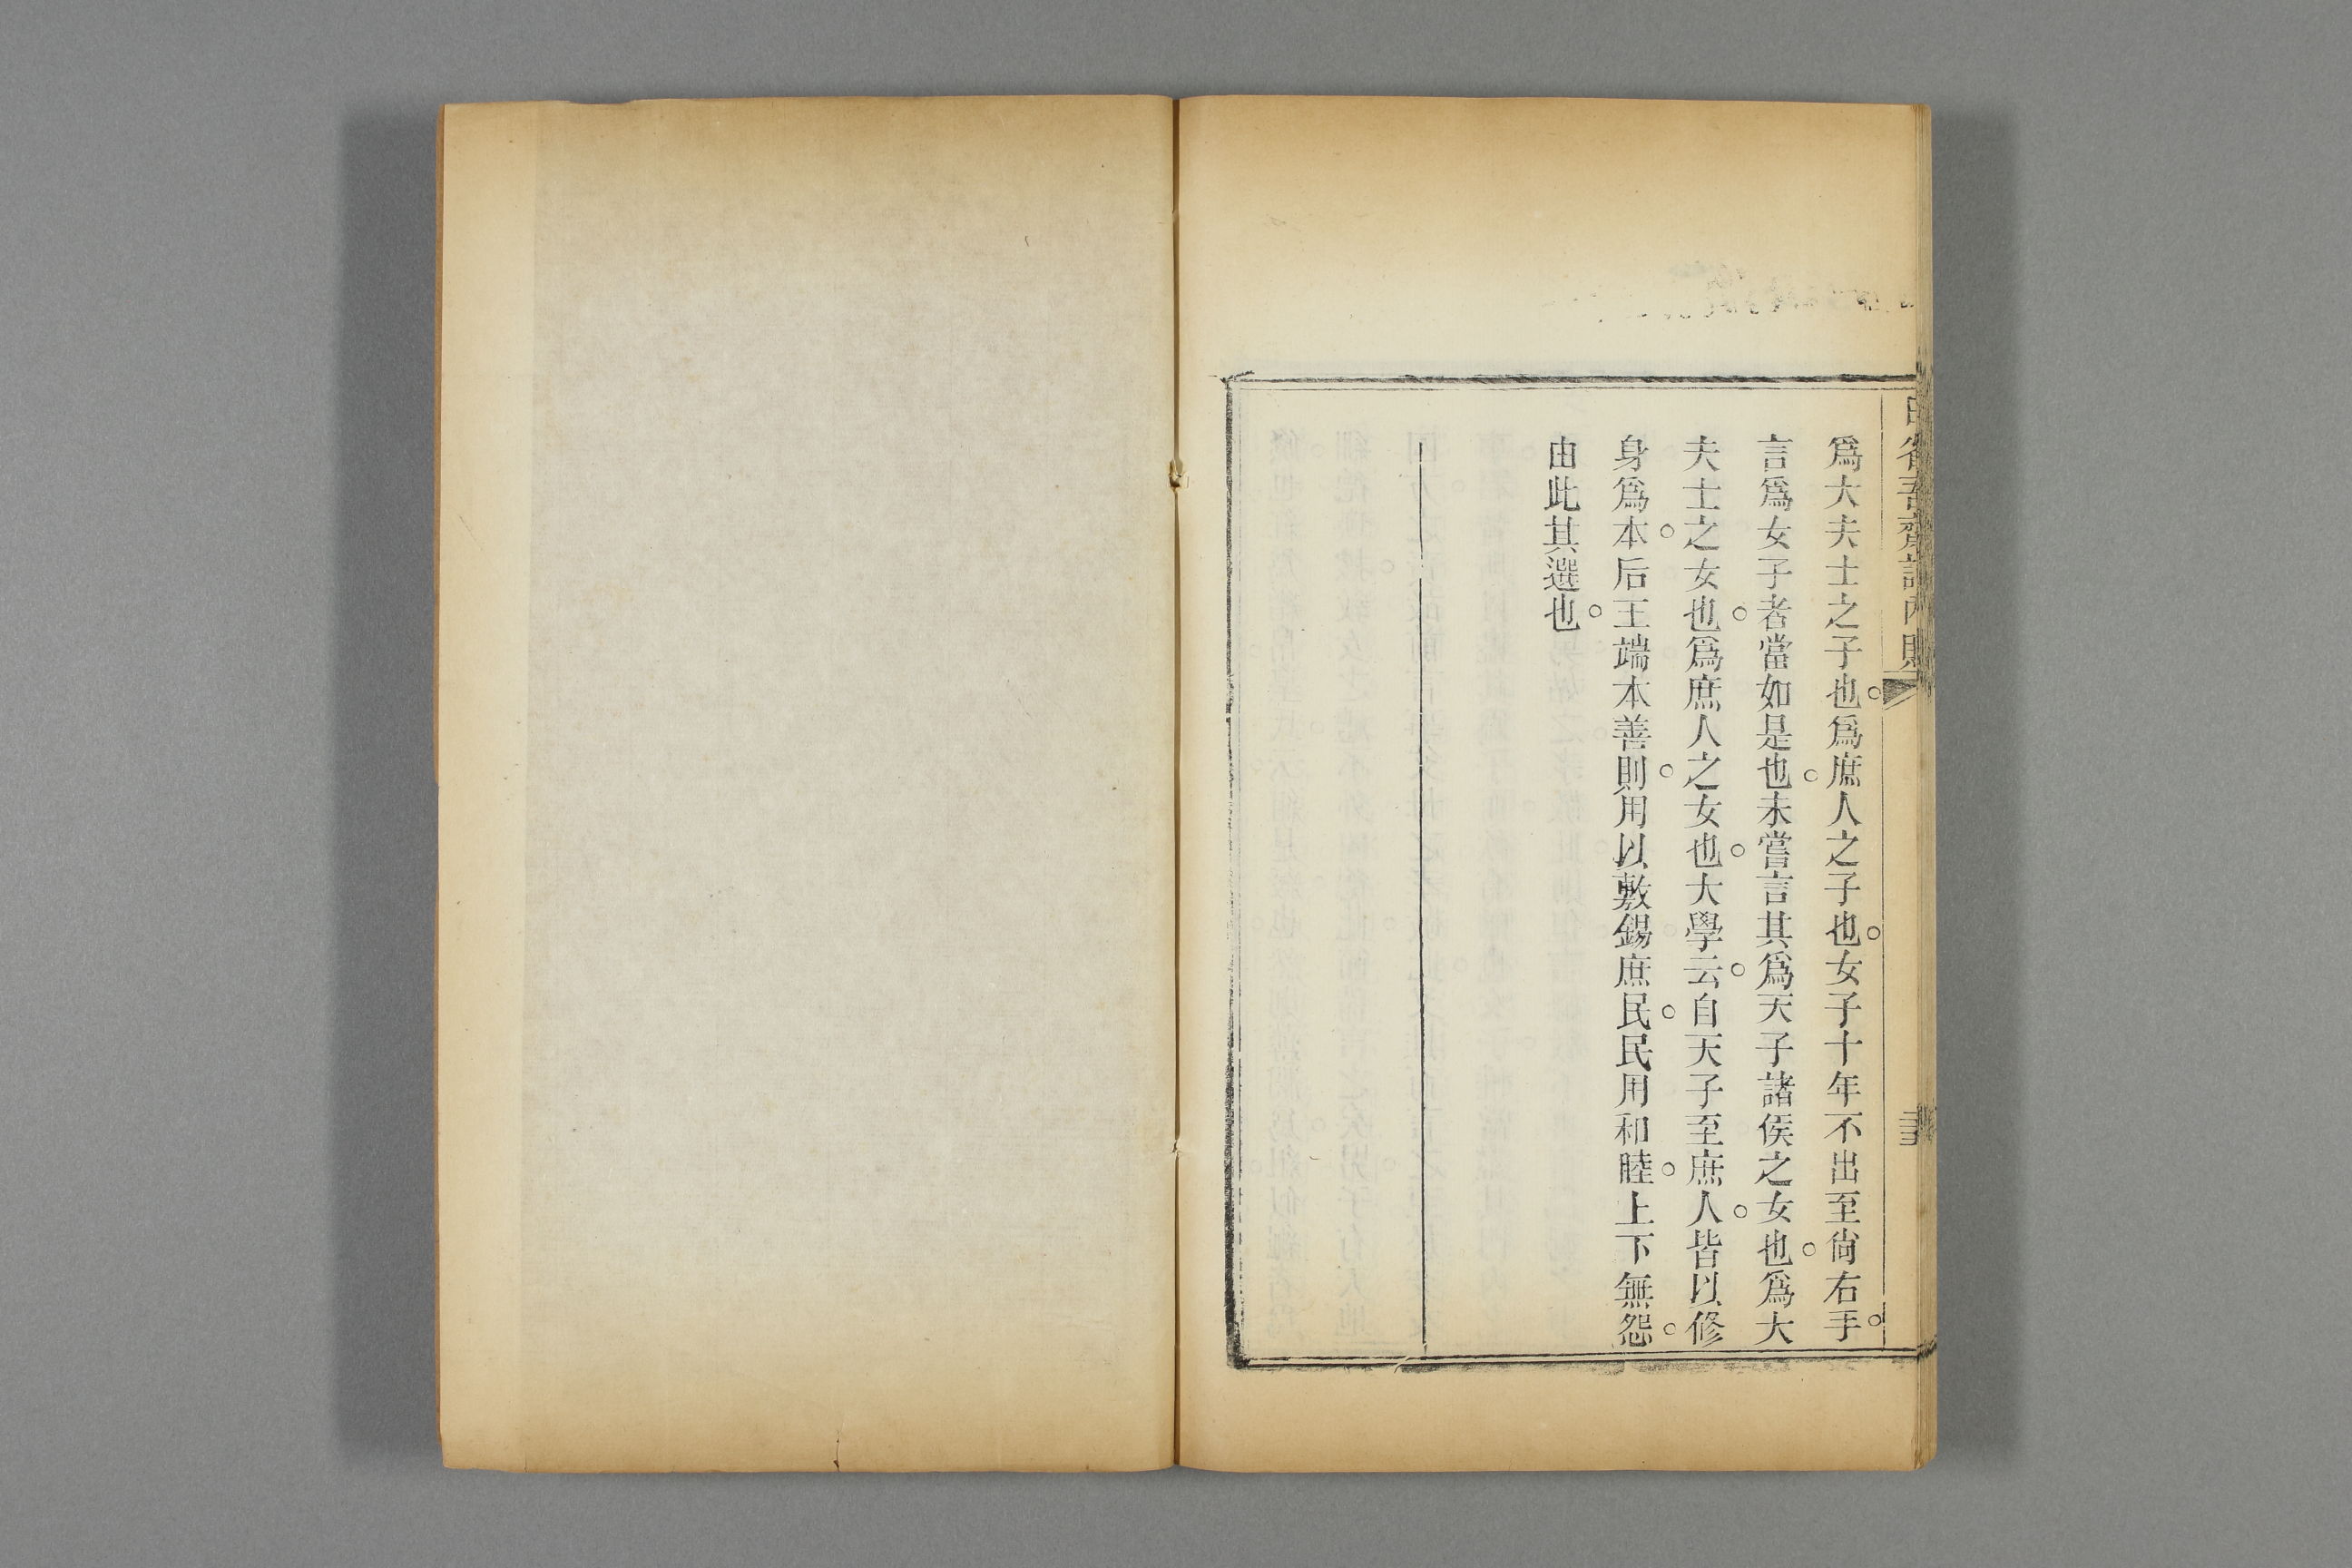 爲大夫士之子也。爲庶人之子也。女子十年不出至尙右手。
言爲女子者當如是也。未嘗言其爲天子諸侯之女也。爲大
夫士之女也。爲庶人之女也。大學云。自天子至庶人。皆以修
身爲本。后王端本善則。用以敷錫庶民。民用和睦。上下無怨。
由此其選也。